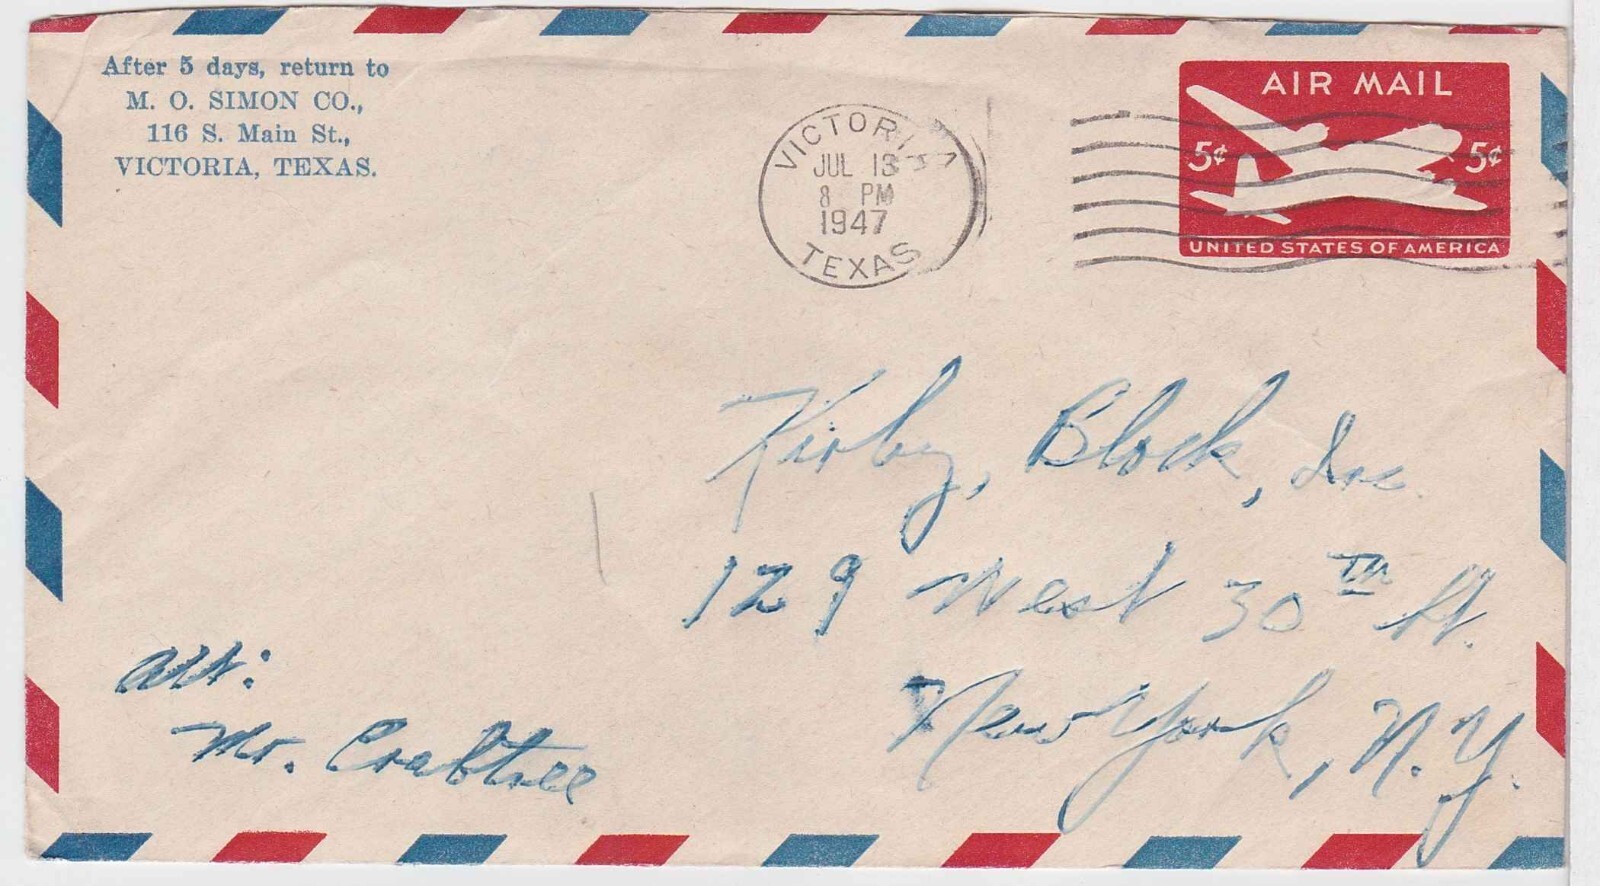 After 5 days, return to
M. O. SIMON CO.,
116 S. Main St.,
VICTORIA, TEXAS.
VICTORIA
JUL 13
8 PM
1947
TEXAS
AIR MAIL
5¢ 5¢
UNITED STATES OF AMERICA
Kirby, Block, Inc.
129 West 30TH St.
New York, N.Y.
Att:
Mr. Crabtree